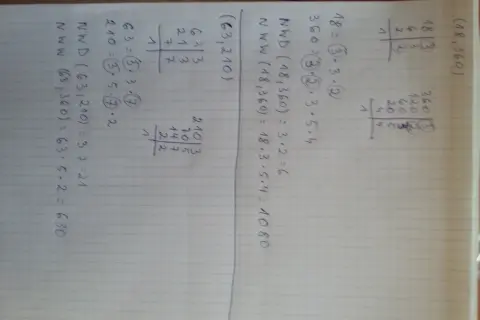 (18,360)
18 | 3
6 | 3
2 | 2
1
360 | 3
120 | 2
60 | 3
20 | 5
4 | 4
1
18 = 3 · 3 · 2
360 = 3 · 2 · 3 · 5 · 4
NWD (18,360) = 3 · 2 = 6
NWW (18,360) = 18 · 3 · 5 · 4 = 1080
(63,210)
63 | 3
21 | 3
7 | 7
1
210 | 3
70 | 5
14 | 7
2 | 2
1
63 = 3 · 3 · 7
210 = 3 · 5 · 7 · 2
NWD (63,210) = 3 · 7 = 21
NWW (63,360) = 63 · 5 · 2 = 630